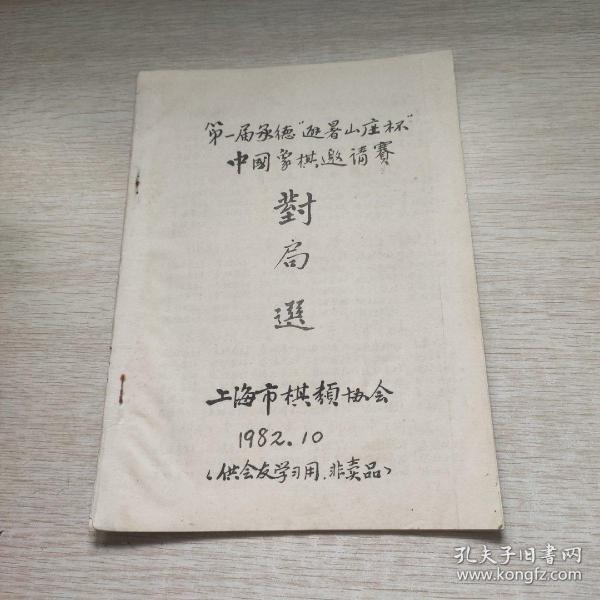 第一届承德“避暑山庄杯”
中國象棋邀请賽
對
局
選
上海市棋類协会
1982.10
(供会友学习用.非卖品)
孔夫子旧书网
www.kongfz.com